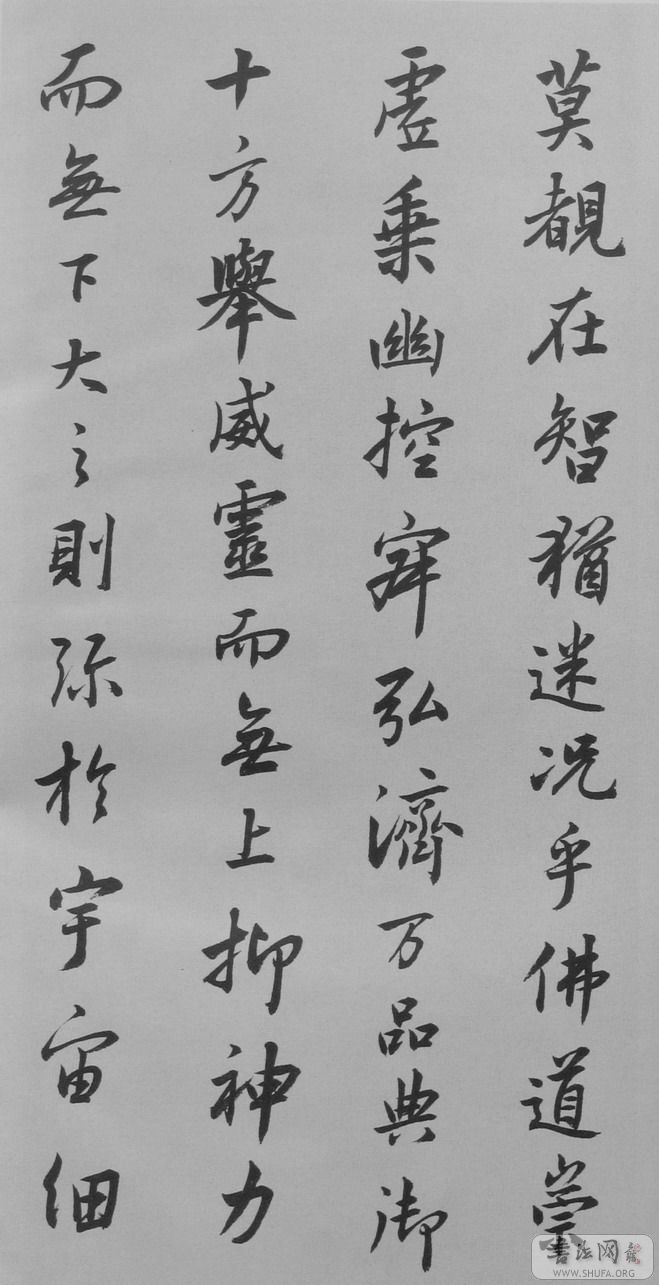 莫覩在智猶迷况乎佛道崇
虛乗幽控寂弘濟万品典御
十方舉威靈而無上抑神力
而無下大之則弥於宇宙細
書法网
WWW.SHUFA.ORG